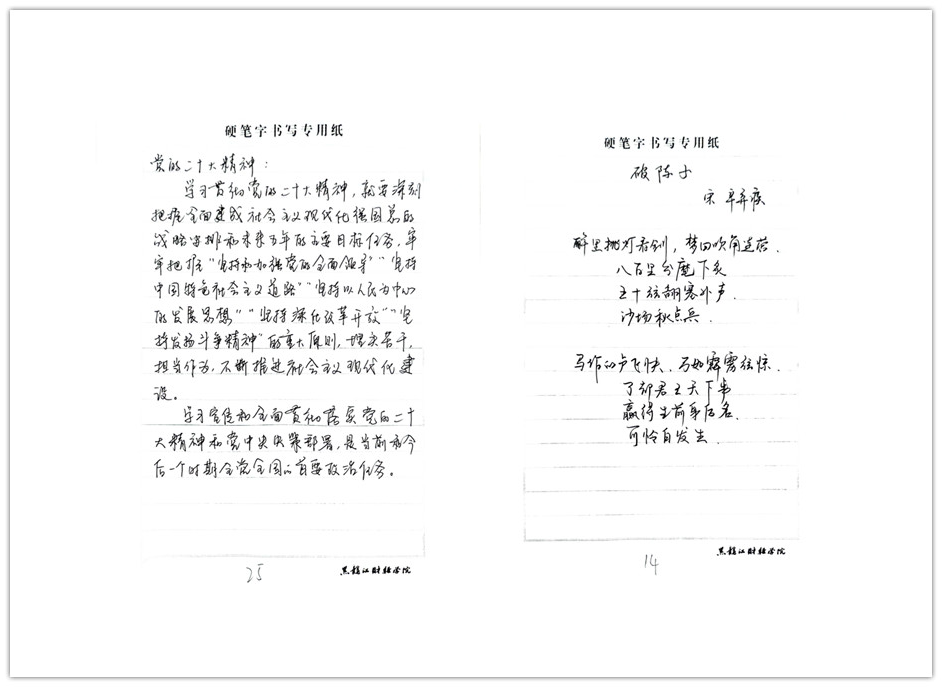 硬笔字书写专用纸
党的二十大精神：
学习贯彻党的二十大精神，就要深刻
把握全面建成社会主义现代化强国总的
战略安排和未来五年的主要目标任务，牢
牢把握“坚持和加强党的全面领导”“坚持
中国特色社会主义道路”“坚持以人民为中心
的发展思想”“坚持深化改革开放”“坚
持发扬斗争精神”的重大原则，埋头苦干，
担当作为，不断推进社会主义现代化建
设。
学习宣传和全面贯彻落实党的二十
大精神和党中央决策部署，是当前和今
后一个时期全党全国的首要政治任务。
25
黑龙江财经学院
硬笔字书写专用纸
破陈子
宋 辛弃疾
醉里挑灯看剑，梦回吹角连营
八百里分麾下炙
五十弦翻塞外声．
沙场秋点兵．
马作的卢飞快．弓如霹雳弦惊．
了却君王天下事
赢得生前身后名．
可怜白发生．
14
黑龙江财经学院